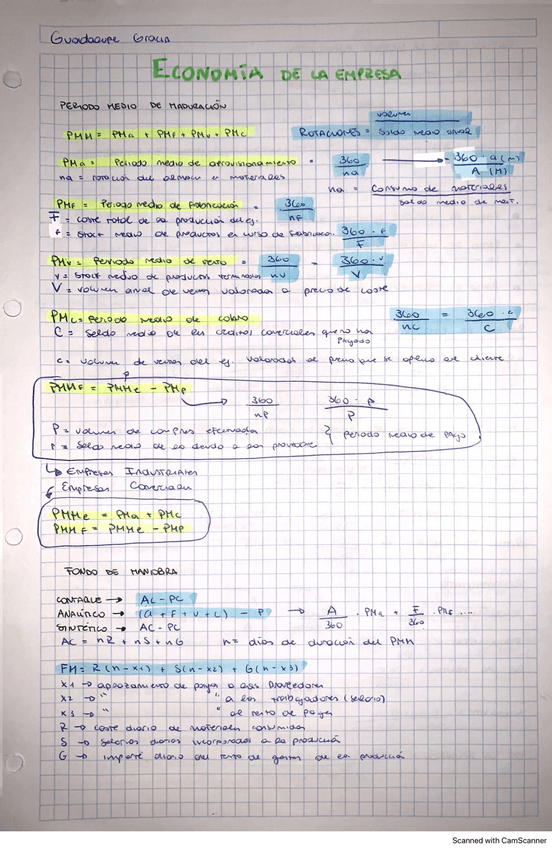 Guadalupe Gracia
ECONOMÍA DE LA EMPRESA
PERIODO MEDIO DE MADURACIÓN
PMM = PMa + PMf + PMv + PMc ROTACIONES = volumen / Saldo medio anual
PMa = Periodo medio de aprovisionamiento = 360 / na → = 360 · a (m) / A (M)
na = rotación del almacén de materiales
na = Consumo de materiales / Saldo medio de mat.
PMF = Periodo medio de fabricación = 360 / nF
F = coste total de la producción del ej.
f = stock medio de productos en curso de fabricac. 360 · f / F
PMv = Periodo medio de venta = 360 / nv = 360 · v / V
v = stock medio de productos terminados
V = volumen anual de ventas valorados a precio de coste
PMc = Periodo medio de cobro 360 / nc = 360 · c / C
C = Saldo medio de los créditos comerciales que no han
pagado
c = volumen de ventas del ej. valorados al precio que se al cliente
p
PMMF = PMMe - PMp → 360 / np 360 · p / P
P = volumen de compras efectuadas
p = Saldo medio de lo debido a los proveedor } periodo medio de pago
↳ Empresas Industriales
Empresas Comerciales
PMMe = PMa + PMc
PMMF = PMMe - PMP
FONDO DE MANIOBRA
CONTABLE → AC - PC
ANALÍTICO → (a + F + v + c) - P → A / 360 · PMa + F / 360 · PMF ...
SINTÉTICO → AC - PC
AC = nR + nS + nG n = días de duración del PMM
FM = R(n-x1) + S(n-x2) + G(n-x3)
x1 → aplazamiento de pagos a los Proveedores
x2 → " " a los trabajadores (salario)
x3 → " " al resto de pagos
R → coste diario de materiales consumidos
S → Salarios diarios incorporados a la producción
G → importe diario del resto de gastos de la producción
Scanned with CamScanner